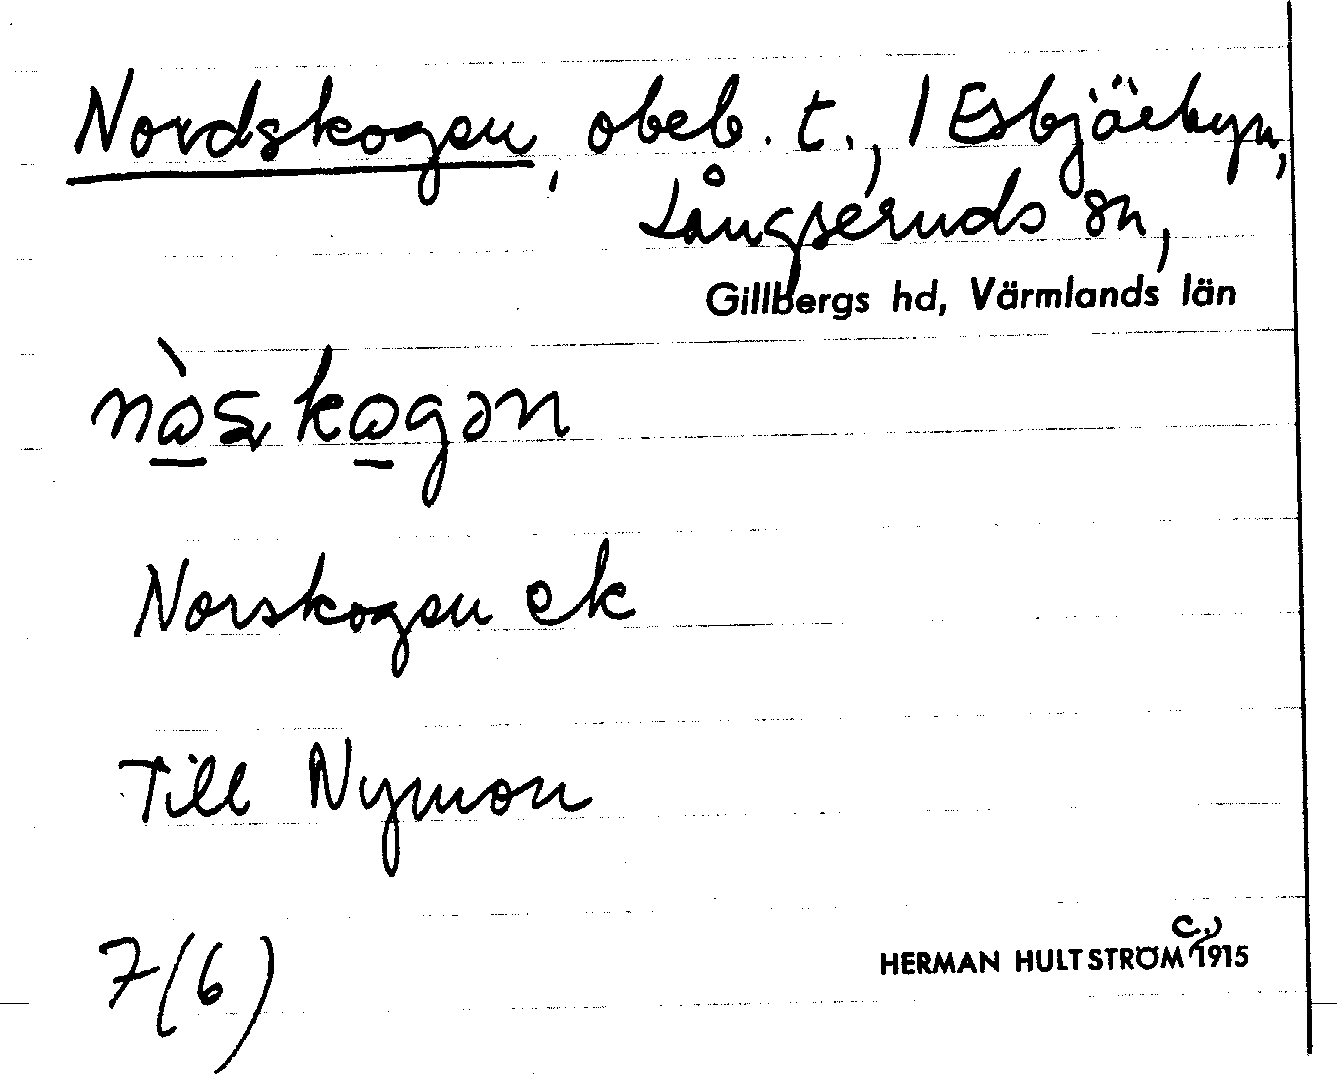 Nordskogen, obeb. t., 1 Esbjörbyn,
Långseruds sn,
Gillbergs hd, Värmlands län
Norskogen ek
Till Nymon
7(6)
HERMAN HULTSTRÖM C., 1915